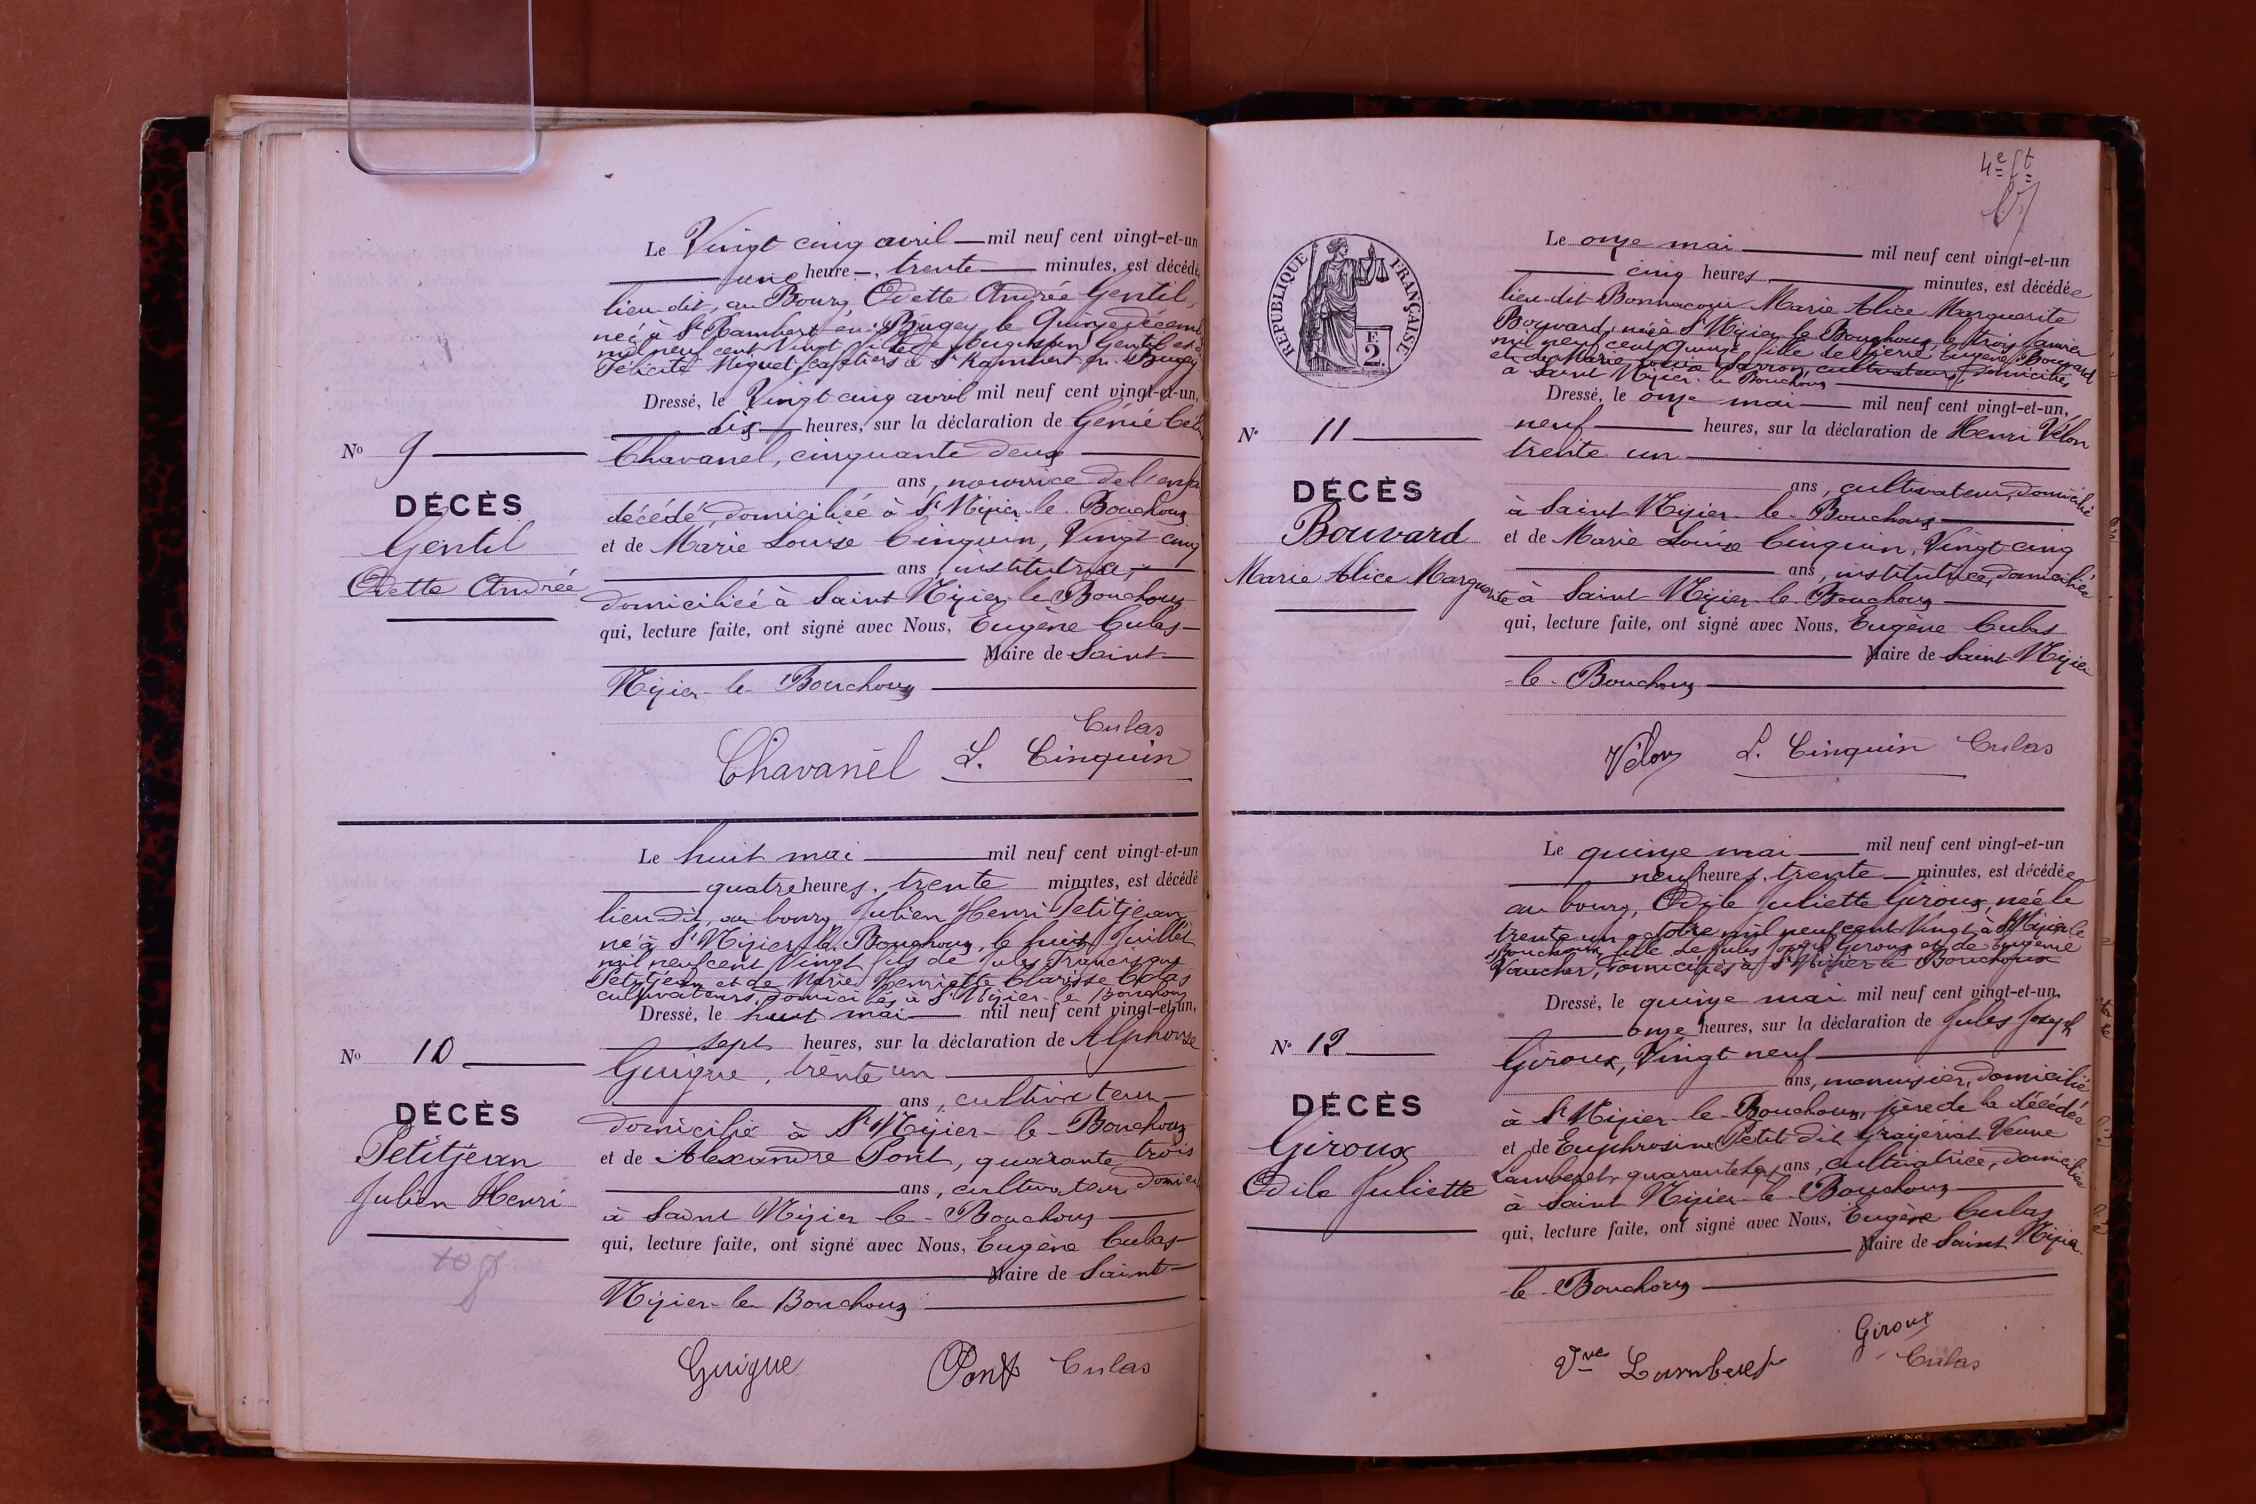 Le Vingt cinq avril mil neuf cent vingt-et-un
une heure, trente minutes, est décédé
lieu dit, au Bourg, Odette Andrée Gentil,
née à St Rambert en Bugey, le Quinze décem
mil neuf cent Vingt fille de Gentil et
Félicité Miguet, cafetiers à St Rambert en Bugey
Dressé, le Vingt cinq avril mil neuf cent vingt-et-un,
dix heures, sur la déclaration de Génie
Nº 9
Chavanel, cinquante deux
ans, nourrice de l'enfa
DÉCÈS
décédé, domiciliée à St Nizier le Bouchoux
Gentil
et de Marie Louise Cinquin, Vingt cinq
ans, institutrice,
Odette Andrée
domiciliée à Saint Nizier le Bouchoux
qui, lecture faite, ont signé avec Nous, Eugène Culas
Maire de Saint
Nizier-le-Bouchoux
Culas
Chavanel L. Cinquin
Le huit mai mil neuf cent vingt-et-un
quatre heures, trente minutes, est décédé
lieu dit, au bourg, Julien Henri Petitjean
né à St Nizier le Bouchoux, le huit Juillet
mil neuf cent Vingt fils de Jules François
Petitjean et de Marie Henriette Clarisse Colas
cultivateurs, domiciliés à St Nizier-le-Bouchoux
Dressé, le huit mai mil neuf cent vingt-et-un,
sept heures, sur la déclaration de Alphonse
Nº 10
Guigue, trente un
ans, cultivateur
DÉCÈS
domicilié à St Nizier-le-Bouchoux
Petitjean
et de Alexandre Pont, quarante trois
Julien Henri
ans, cultivateur domici
à Saint Nizier le-Bouchoux
qui, lecture faite, ont signé avec Nous, Eugène Culas
Maire de Saint
Nizier-le-Bouchoux
Guigue Pont Culas
4e ft
RÉPUBLIQUE FRANÇAISE
2
Le onze mai mil neuf cent vingt-et-un
cinq heures, minutes, est décédée
lieu-dit Marie Alice Marguerite
Bouvard, née à St Nizier le Bouchoux, le trois Janvier
mil neuf cent quinze, fille de Pierre Eugène Bouvard
et de Marie Louise cultivateurs, domiciliés
à Saint Nizier-le-Bouchoux
Dressé, le onze mai mil neuf cent vingt-et-un,
neuf heures, sur la déclaration de Henri Vélon
Nº 11
trente un
ans, cultivateur, domicilié
DÉCÈS
à Saint Nizier-le-Bouchoux
Bouvard
et de Marie Louise Cinquin, Vingt cinq
ans, institutrice, domiciliée
Marie Alice Marguerite
à Saint Nizier-le-Bouchoux
qui, lecture faite, ont signé avec Nous, Eugène Culas
Maire de Saint Nizier
-le-Bouchoux
Vélon L. Cinquin Culas
Le quinze mai mil neuf cent vingt-et-un
neuf heures, trente minutes, est décédée
au bourg, Odile Juliette Giroux, née le
trente un octobre mil neuf cent Vingt à St Nizier le
Bouchoux, fille de Jules Joseph Giroux et de Eugénie
Vaucher, domiciliés à St Nizier-le Bouchoux
Dressé, le quinze mai mil neuf cent vingt-et-un
onze heures, sur la déclaration de Jules Joseph
Nº 12
Giroux, Vingt neuf
ans, menuisier, domicilié
DÉCÈS
à St Nizier-le-Bouchoux, père de la décédée
Giroux
et de Euphrosine Petit dit Veuve
Lamberet, quarante ans, cultivatrice, domiciliée
Odile Juliette
à Saint Nizier-le-Bouchoux
qui, lecture faite, ont signé avec Nous, Eugène Culas
Maire de Saint Nizier
-le-Bouchoux
Giroux
Vve Lamberet Culas